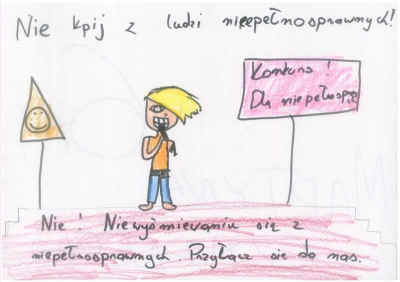 Nie kpij z ludzi niepełnosprawnych!
Konkurs!
Dla niepełospr
Nie! Niewyśmiewaniu się z
niepełnosprawnych. Przyłącz sie do nas.